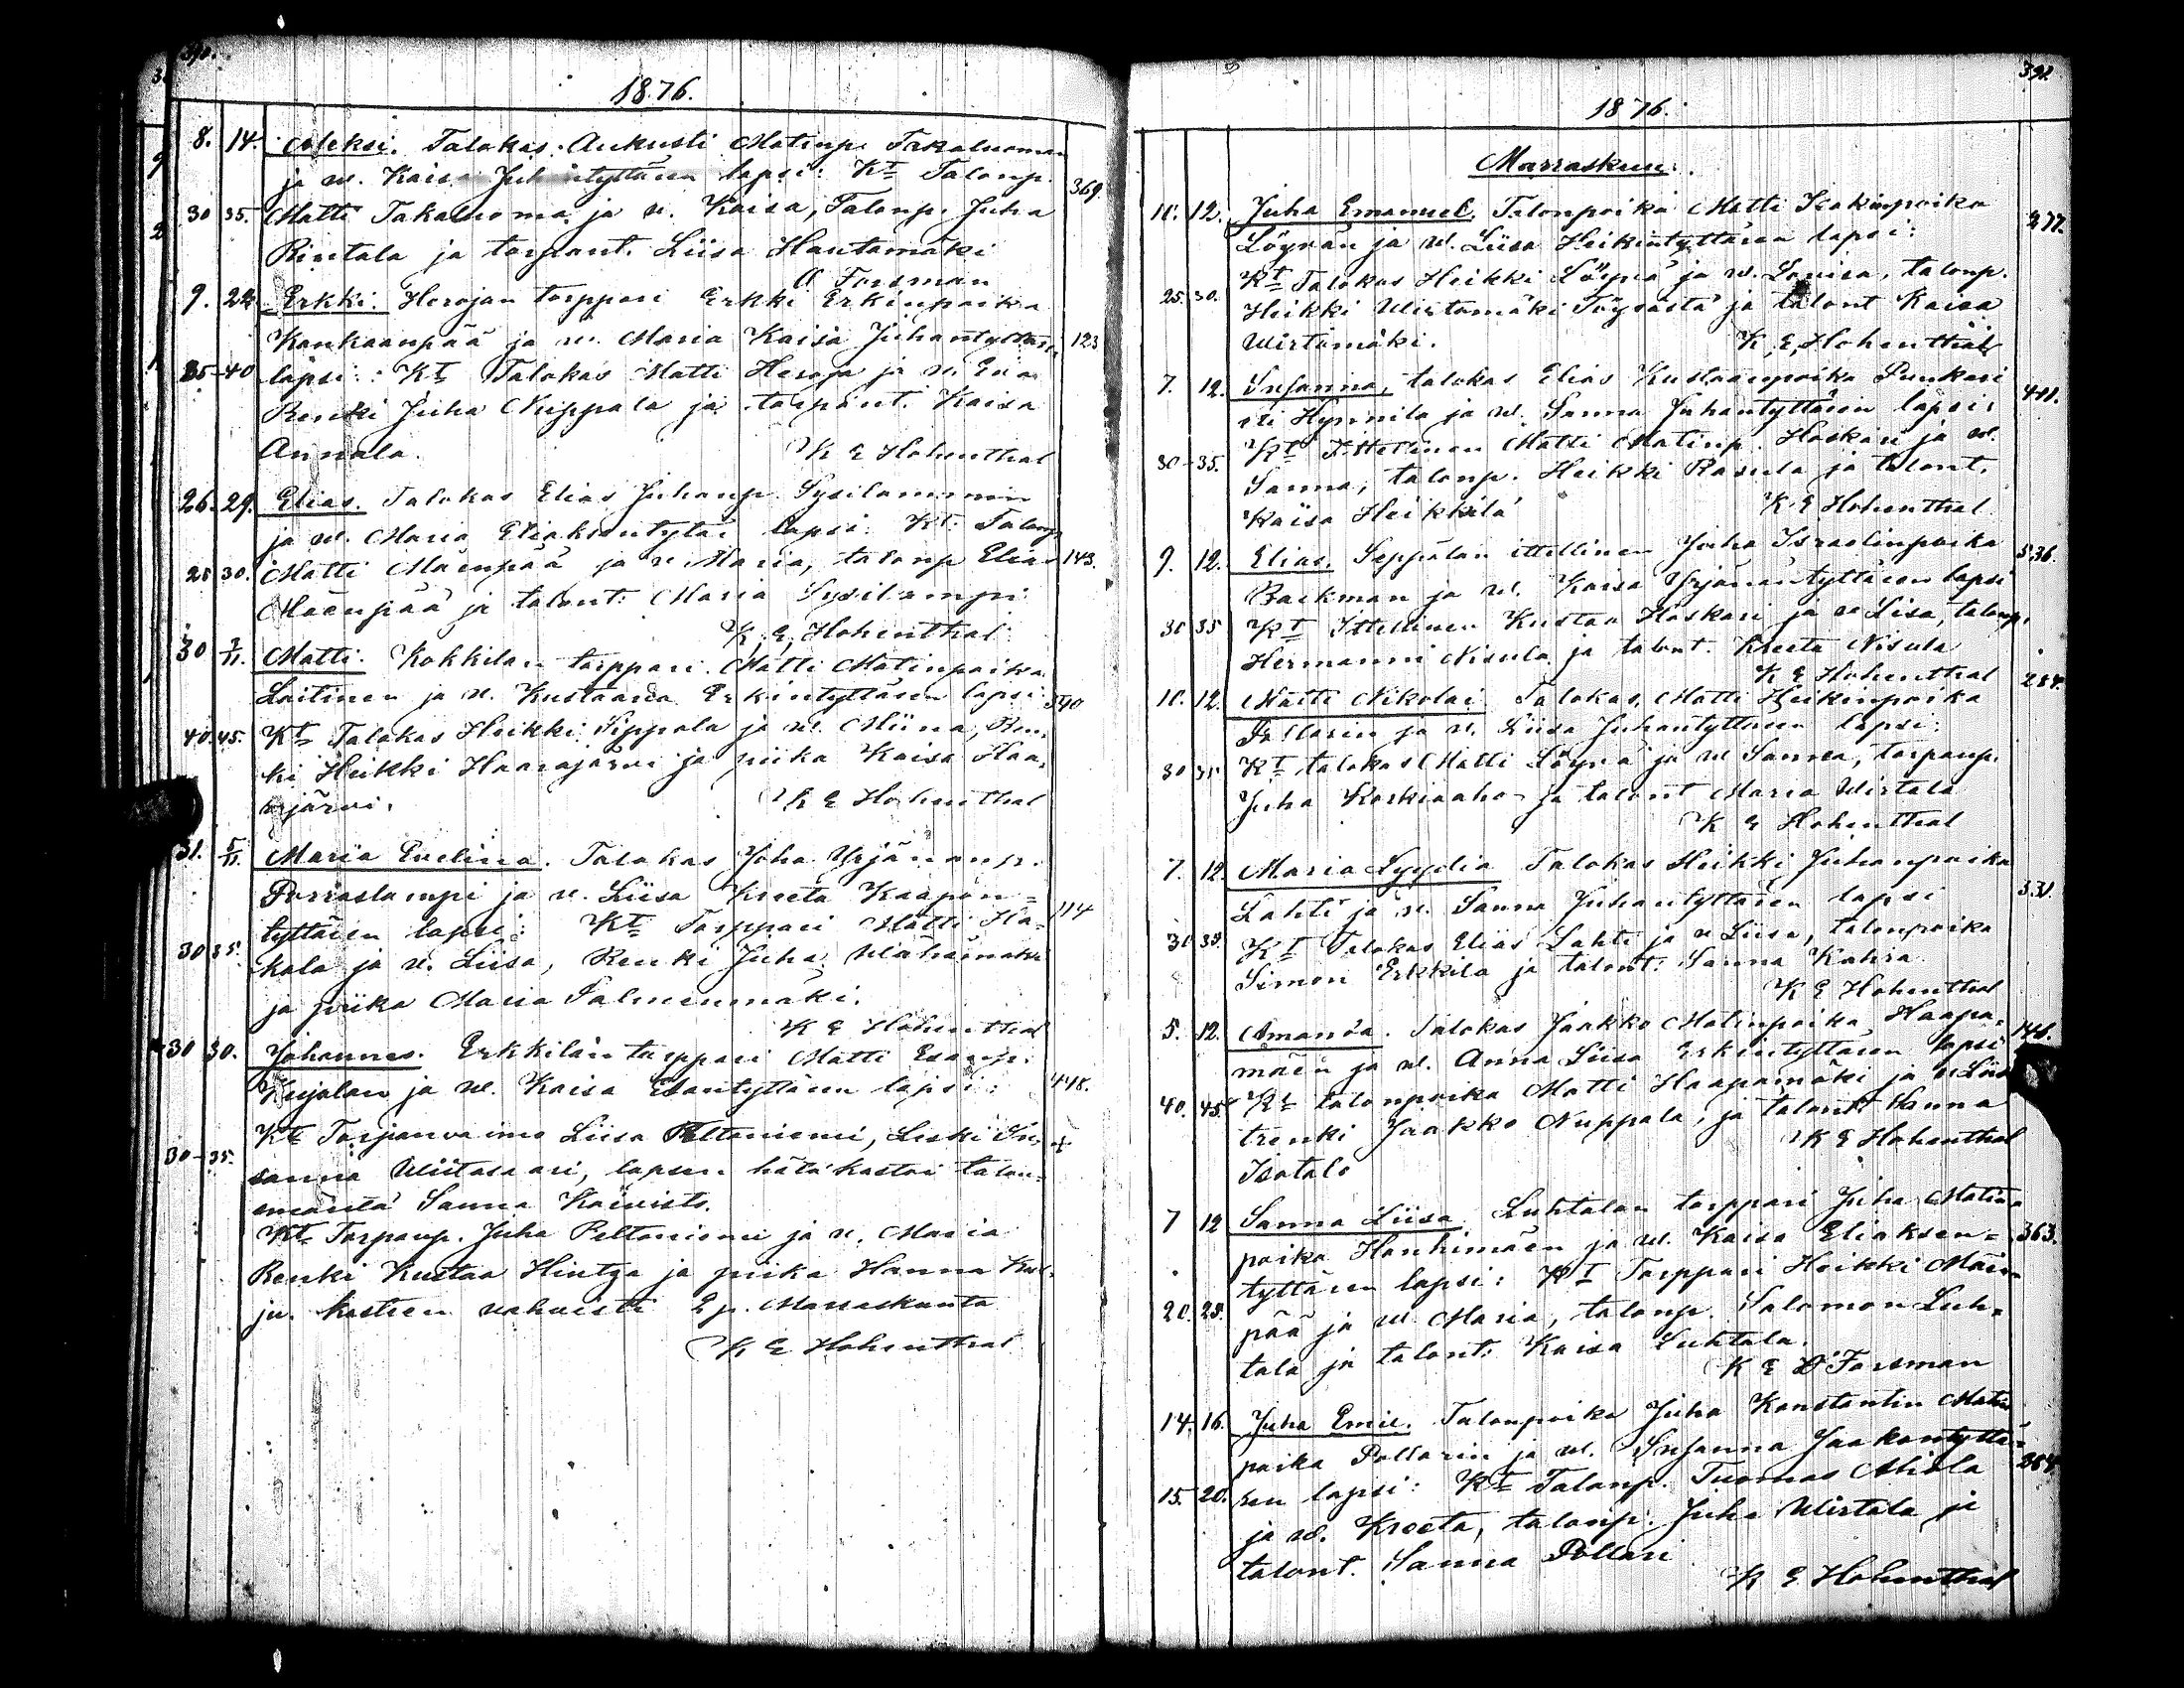 390.
1876.
8. 14. Aleksi. Talokas Aukusti Matinp. Takaluoman
ja w. Kaisa Juhantyttären lapsi: Kt Talonp. 369.
30 35. Matti Takaluoma ja w. Kaisa, Talonp. Juha
Rintala ja torpant. Liisa Hautamäki
A Forsman
9. 22. Erkki. Herojan torppari Erkki Erkinpoika
Kankaanpää ja w. Maria Kaisa Juhantyttären 123
35-40 lapsi: Kt Talokas Matti Heroja ja w. Eva
Renki Juha Nuppala ja torpant. Kaisa
Annala. K E Hohenthal
26. 29. Elias. Talokas Elias Juhanp. Sysilammin
ja w. Maria Eliaksentytär lapsi: Kt Talonp.
25 30. Matti Mäenpää ja w. Maria, talonp Elias 143.
Mäenpää ja talont: Maria Sysilampi
K. E. Hohenthal
30 2/11. Matti. Kokkilan torppari Matti Matinpoika
Laitinen ja w. Kustaava Erkintyttären lapsi 340
40. 45. Kt Talokas Heikki Sippola ja w. Miina, Ren-
ki Heikki Haarajärvi ja piika Kaisa Haa-
rajärvi. K E Hohenthal
31. 5/11. Maria Evelina. Talokas Juha Yrjänänp.
Porraslampi ja w. Liisa Kreeta Kaapon-
tyttären lapsi: Kt Torppari Matti Ha- 114
30 35. kola ja w. Liisa, Renki Juha Wähämäki
ja piika Maria Salmenmäki.
K E Hohenthal
30 30. Johannes. Erkkilän torppari Matti Esanp.
Kujalan ja w. Kaisa Esantyttären lapsi: 448.
Kt Torpanvaimo Liisa Peltoniemi, Leski Su- +
30-35. sanna Wiitasaari, lapsen hätäkastoi talon-
emäntä Sanna Koivisto.
Kt Torpanp. Juha Peltoniemi ja w. Maria
Renki Kustaa Hintza ja piika Hanna
ju. kasteen vahvisti 2 p. Marraskuuta
K E Hohenthal
391.
1876.
Marraskuu.
10. 12. Juha Emanuel. Talonpoika Matti Isakinpoika
Löyvän ja w. Liisa Heikintyttären lapsi: 277.
Kt Talokas Heikki Löyvä ja w. Lovisa, talonp.
25. 30. Heikki Wirtamäki Töysästä ja talont Kaisa
Wirtamäki. K. E. Hohenthal
7. 12. Susanna, talokas Elias Kustaanpoika Punkari
eli Hynnilä ja w. Sanna Juhantyttären lapsi: 411.
Kt Itsellinen Matti Matinp. Haskari ja w.
30-35. Sanna, talonp. Heikki Rasula ja talont.
Kaisa Heikkilä K. E Hohenthal
9. 12. Elias. Seppälän ittellinen Juha Israelinpoika 536.
Backman ja w. Kaisa Yrjänäntyttären lapsi
30 35 Kt Ittellinen Kustaa Haskari ja w Lisa, talonp.
Hermanni Nisula ja talont. Kreeta Nisula
K E Hohenthal
10. 12. Matti Nikolai Talokas, Matti Heikinpoika 284.
Pollarin ja w. Liisa Juhantyttären lapsi:
30 35 Kt talokas Matti Löyvä ja w Sanna, torpanp.
Juha Koskiaho ja talont Maria Wirtala
K E Hohenthal
7. 12. Maria Lyydia Talokas Heikki Juhanpoika
Lahti ja w. Sanna Juhantyttären lapsi 331.
30 35. Kt Talokas Elias Lahti ja w Liisa, talonpoika
Simon Erkkilä ja talont: Sanna Kahra
K E Hohenthal
5. 12. Amanda. Talokas Jaakko Matinpoika Haapa-
mäen ja w. Anna Liisa Erkintyttären lapsi 146.
40. 45. Kt talonpoika Matti Haapamäki ja w Liisa
trenki Jaakko Nuppala, ja talont Hanna
Isotalo K E Hohenthal
7 12 Sanna Liisa Luhtalan torppari Juha Matin
poika Hanhimäen ja w. Kaisa Eliaksen- 363.
tyttären lapsi: Kt Torppari Heikki Mäen-
20. 25. pää ja w. Maria, talonp. Salomon Luh-
tala ja talont: Kaisa Luhtala.
K E D Forsman
14. 16. Juha Emil. Talonpoika Juha Konstantin Matin
poika Pollarin ja w. Susanna Jaakontyttä-
15. 20. ren lapsi: Kt Talonp. Tuomas Ahola 264
ja w. Kreeta, talonp. Juha Wirtala ja
talont. Sanna Pollari
K E Hohenthal